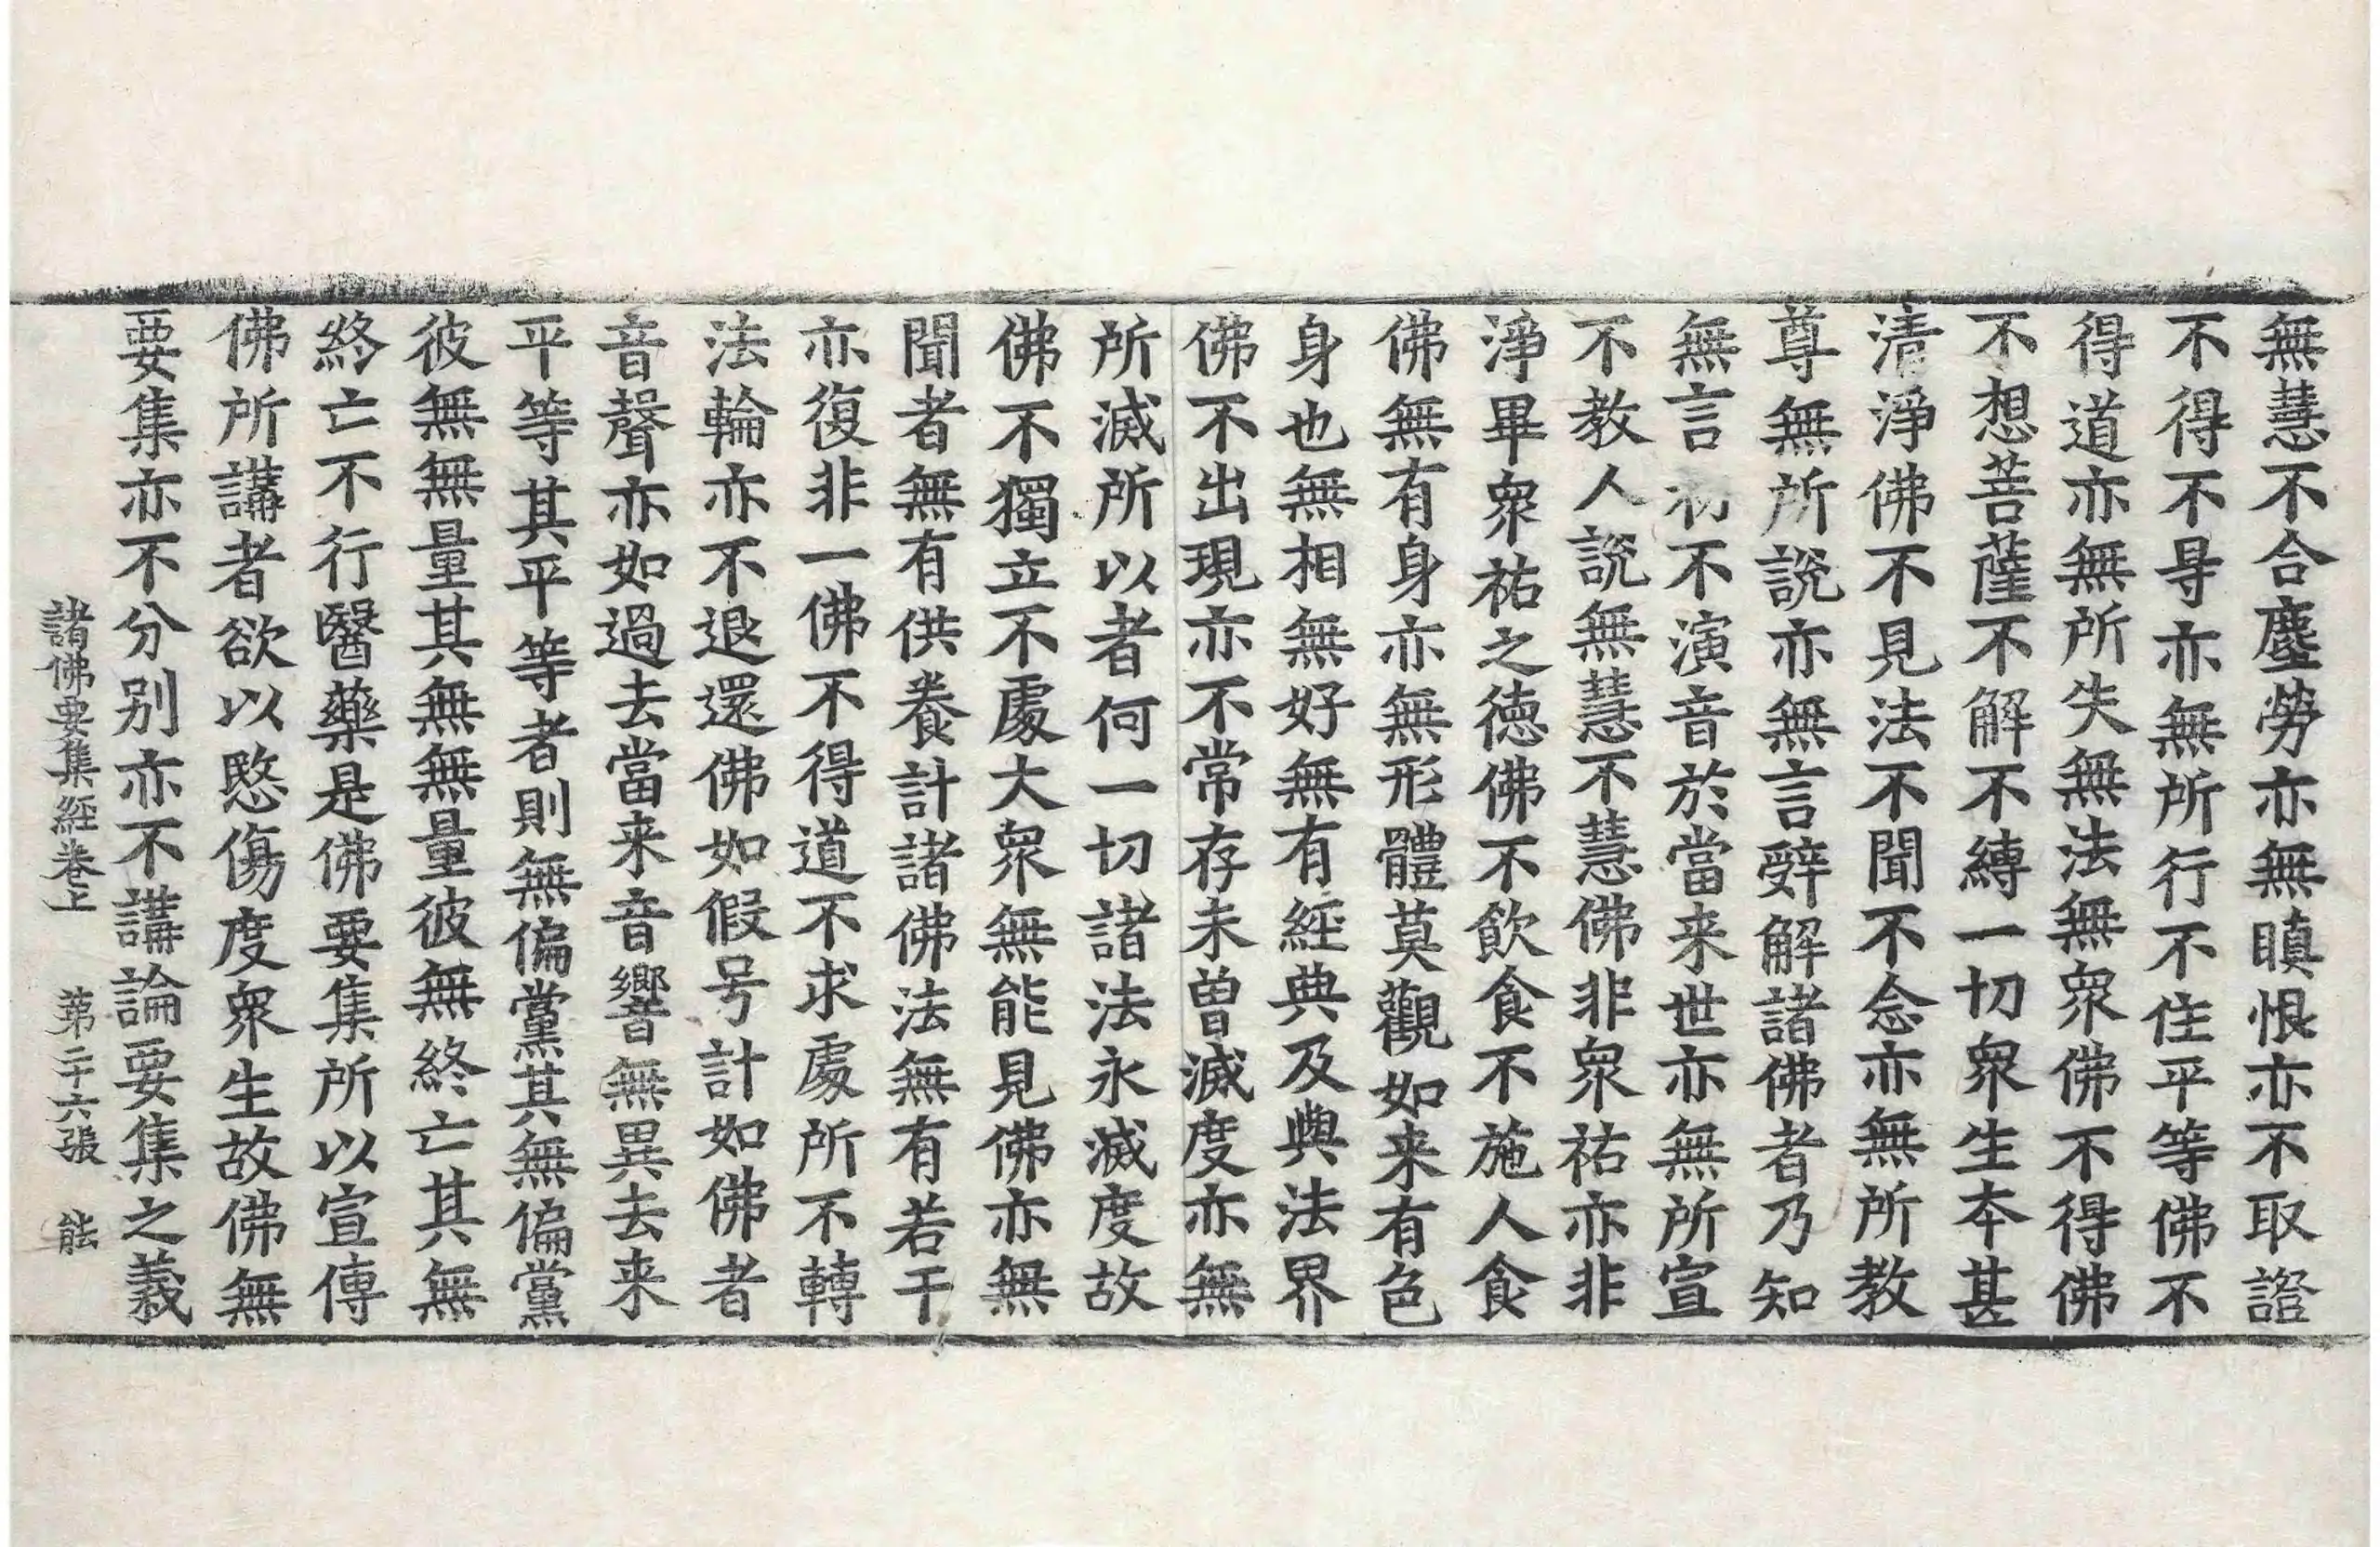 無慧不合塵勞亦無瞋恨亦不取證
不得不㝵亦無所行不住平等佛不
得道亦無所失無法無衆佛不得佛
不想菩薩不解不縛一切衆生本甚
清淨佛不見法不聞不念亦無所教
尊無所說亦無言辤解諸佛者乃知
無言初不演音於當来世亦無所宣
不教人說無慧不慧佛非衆祐亦非
淨畢衆祐之德佛不飲食不施人食
佛無有身亦無形體莫觀如来有色
身也無相無好無有經典及與法界
佛不出現亦不常存未曽滅度亦無
所滅所以者何一切諸法永滅度故
佛不獨立不處大衆無能見佛亦無
聞者無有供養計諸佛法無有若干
亦復非一佛不得道不求處所不轉
法輪亦不退還佛如假号計如佛者
音聲亦如過去當来音響無異去来
平等其平等者則無偏黨其無偏黨
彼無無量其無無量彼無終亡其無
終亡不行醫藥是佛要集所以宣傳
佛所講者欲以愍傷度衆生故佛無
要集亦不分别亦不講論要集之義
諸佛要集經卷上 第二十六張 能